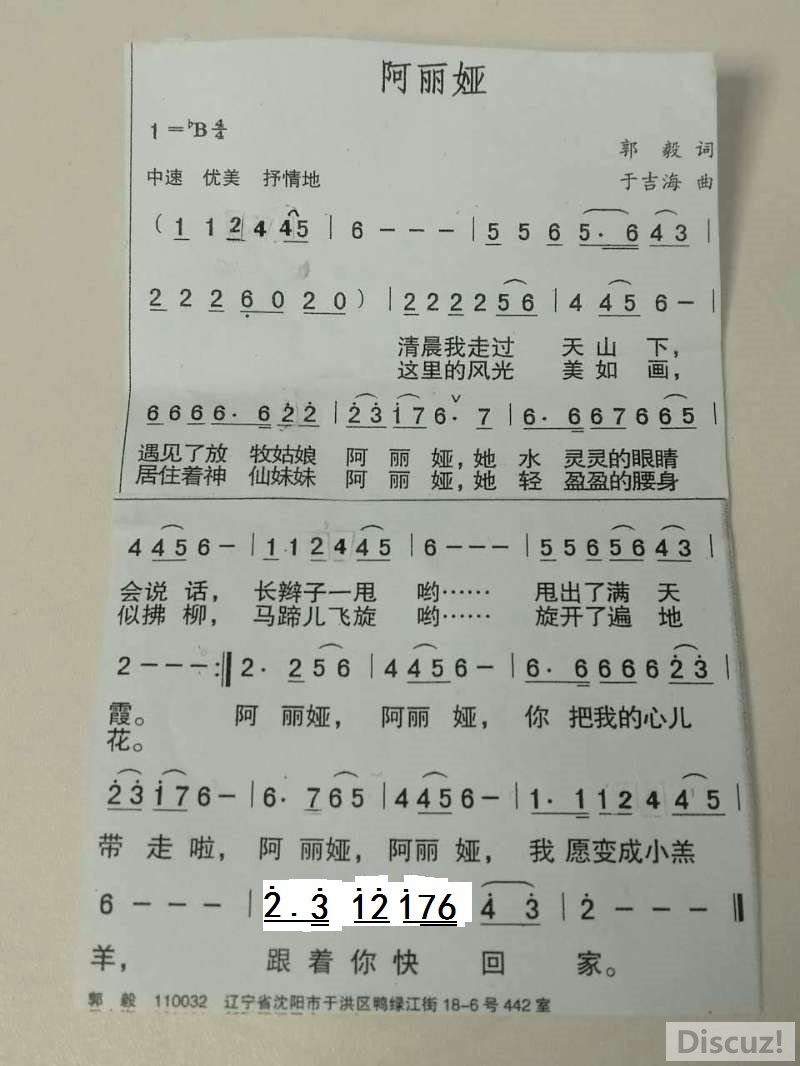 阿丽娅
1=♭B 4/4
郭 毅 词
中速 优美 抒情地
于吉海 曲
( 1 1 2 4 4 5 | 6 - - - | 5 5 6 5 · 6 4 3 |
2 2 2 6 0 2 0 ) | 2 2 2 2 5 6 | 4 4 5 6 - |
清晨我走过 天 山 下,
这里的风光 美 如 画,
6 6 6 6 · 6 2̇ 2̇ | 2̇ 3̇ 1̇ 7 6 · 7 | 6 · 6 6 7 6 6 5 |
遇见了放 牧姑娘 阿 丽 娅,她 水 灵灵的眼睛
居住着神 仙妹妹 阿 丽 娅,她 轻 盈盈的腰身
4 4 5 6 - | 1 1 2 4 4 5 | 6 - - - | 5 5 6 5 6 4 3 |
会说 话, 长辫子一甩 哟…… 甩出了满 天
似拂 柳, 马蹄儿飞旋 哟…… 旋开了遍 地
2 - - - :‖ 2 · 2 5 6 | 4 4 5 6 - | 6 · 6 6 6 6 2̇ 3̇ |
霞。 阿 丽娅, 阿丽 娅, 你 把我的心儿
花。
2̇ 3̇ 1̇ 7 6 - | 6 · 7 6 5 | 4 4 5 6 - | 1 · 1 1 2 4 4 5 |
带 走 啦, 阿 丽娅, 阿丽 娅, 我 愿变成小羔
6 - - - | 2̇ . 3̇ 1̇ 2̇ 1̇ 7 6 4̇ 3̇ | 2̇ - - - ‖
羊, 跟 着 你 快 回 家。
郭 毅 110032 辽宁省沈阳市于洪区鸭绿江街 18-6 号 442 室
Discuz!